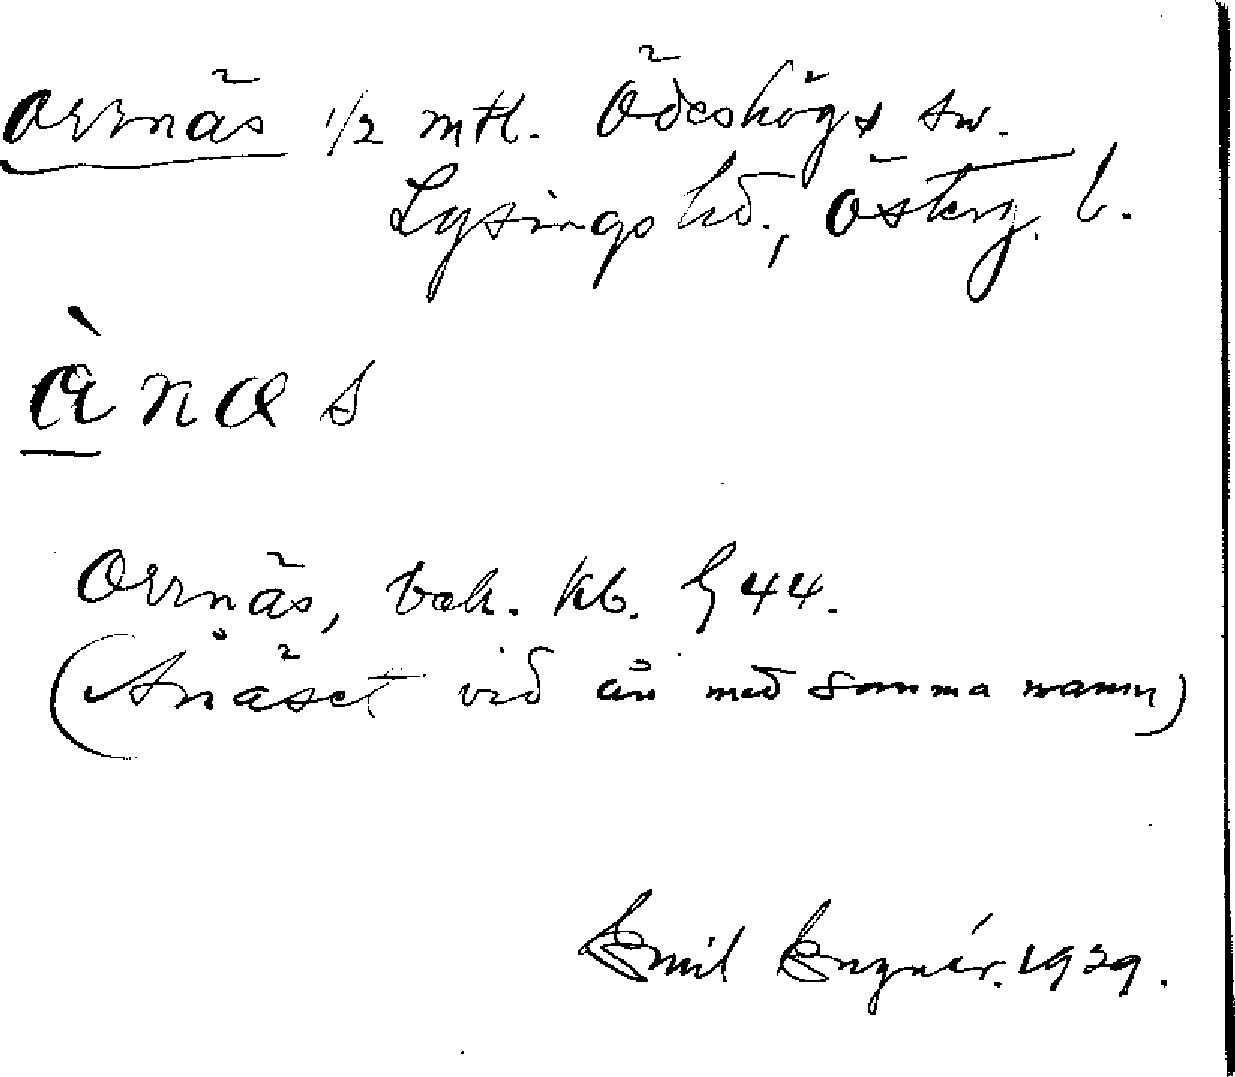 Orrnäs 1/2 mtl. Ödeshögs sn.
Lysings hd., Österg. l.
ànas
Orrnäs, bok. kb. § 44.
(Ånäset vid ån med samma namn)
Emil Engnér. 1929.